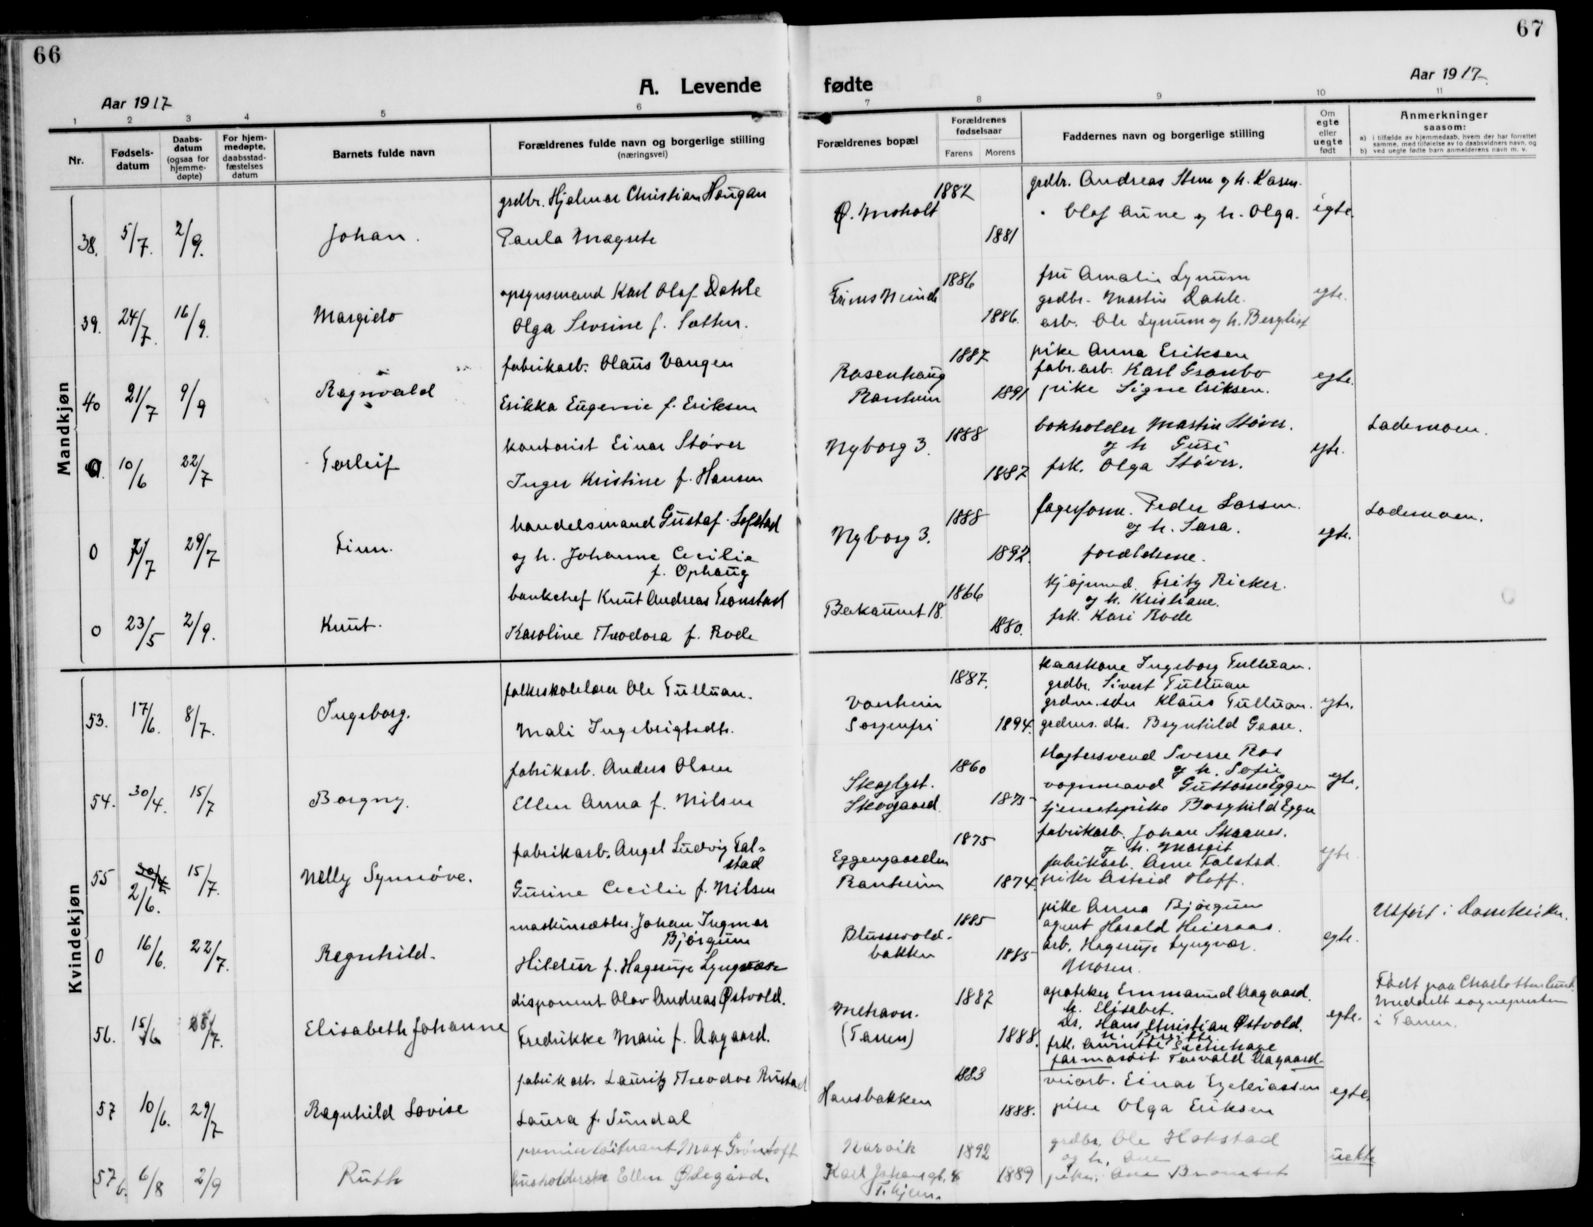 66
67
A. Levende fødte
Aar 1917
Aar 1917.
1 2 3 4 5 6 7 8 9 10 11
Nr.
Fødsels-
datum
Daabs-
datum
(ogsaa for
hjemme-
døpte)
For hjem-
medøpte,
daabsstad-
fæstelses
datum
Barnets fulde navn
Forældrenes fulde navn og borgerlige stilling
(næringsvei)
Forældrenes bopæl
Forældrenes
fødselsaar
Farens Morens
Faddernes navn og borgerlige stilling
Om
egte
eller
uegte
født
Anmerkninger
saasom:
a) i tilfælde av hjemmedaab, hvem der har forrettet
samme, med tilføielse av to daabsvidners navn, og
b) ved uegte fødte barn anmelderens navn m. v.
Mandkjøn
38. 5/7. 2/9. Johan.
grdbr. Hjalmar Christian Haugan
Paula Magrete
1882
1881
grdbr. Andreas Stene og h. Karen.
Olaf Aune og h. Olga. egte.
39. 24/7. 16/9. Margido
opsynsmand Karl Olaf Dahle
Olga Sevrine f. Sætter.
1886
1886.
fru Amalie Lynum
grdbr. Martin Dahle.
arb. Ole Lynum og h. Bergliot
egte.
40 21/7 9/9 Ragnvald
fabrikarb. Olaus Vangen
Erikka Eugenie f. Eriksen
Rosenhaug
Ranheim
1887
1891
pike Anna Eriksen
fabr. arb. Karl Granbo
pike Signe Eriksen.
egte.
0. 10/6 22/7 Torleif
kontorist Einar Støver
Inger Kristine f. Hansen
Nyborg 3.
1888
1887
bokholder Martin Støver.
og h Guri
frk. Olga Støver.
egte.
Lademoen.
0 29/7 Finn.
handelsmand Gustaf Lofstad
og h. Johanne Cecilie
f. Ophaug
Nyborg 3.
1888
1892.
Peder Larsen.
og h. Sara.
forældrene.
egte.
Lademoen.
0 23/5 2/9. Knut.
bankchef Knut Andreas Tronstad
Karoline Theodora f. Rode
Bakaunet 18.
1866
1880.
kjøpmand. Fritz Ricker.
og h. Kristiane.
frk. Kari Rode
Kvindekjøn
53. 17/6. 8/7. Ingeborg.
folkeskolelærer Ole Tulluan.
Mali Ingebrigtsdtr.
Sorgenfri
1887.
1894.
kaarkone Ingeborg Tulluan.
grdbr. Sivert Tulluan
grdm. søn Klaus Tulluan.
grdms. dtr. Brynhild Gaare.
egte.
54. 30/4. 15/7 Borgny.
fabrikarb. Anders Olsen
Ellen Anna f. Nilsen
Skoglyst.
Skovgaard.
1860
1875
slagtersvend Sverre Ros
og h. Sofie
vognmand Guttorm Eggen
tjenestepike Borghild Eggen
egte.
55 30/4 2/6. 15/7. Nelly Synnøve.
fabrikarb. Angel Ludvig Fal-
stad
Gurine Cecilie f. Nilsen
Ranheim
1875
1874.
fabrikarb. Johan Skaanes.
og h. Margit
fabrikarb. Arne Falstad.
pike Astrid Hoff.
egte.
0 16/6. 22/7. Ragnhild.
maskinsætter. Johan Ingmar
Bjørgum
Hildur f. Hagerup Lyngvær
Blussevold-
bakken
1885
1885
pike Anna Bjørgum
agent Harald Heieraas.
arb. Hagerup Lyngvær.
Moren.
egte.
Utført i Domkirken.
56. 15/6 /7. Elisabeth Johanne
disponent Olav Andreas Østvold.
Fredrikke Marie f. Aagaard.
Mehavn.
(Tanen)
1887
1888.
apoteker Emmanuel Aagaard.
h. Elisabet.
Dr. Hans Christian Østvold.
farmaceut Torvald Aagaard.
egte.
Født paa Charlottenlund.
Meddelt sognepresten
i Tanen.
57 10/6. 29/7 Ragnhild Lovise
fabrikarb. Lauritz Theodor Rustad
Laura f. Sundal
Hansbakken
1883
1888.
veiarb. Einar Ezekiassen
pike Olga Eriksen
egte.
57b. 6/8 2/9 Ruth
premierløitnant Max Grøntoft
husholderske Ellen Ødegård.
Narvik
Karl Johansgt. 4
T.hjem.
1892
1889
grdbr. Ole Hokstad
og h. Ane
uekte